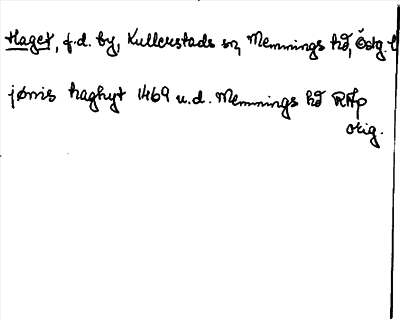 Haget, f.d. by, Kullerstads sn, Memmings hd, Östg. l
jønis haghyt 1469 u.d. Memmings hd RAp
orig.